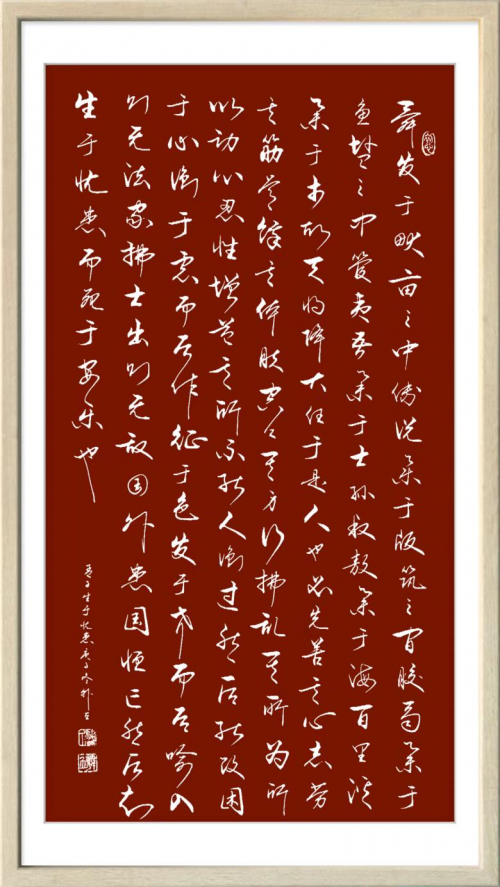 舜发于畎亩之中傅说举于版筑之间胶鬲举于
鱼盐之中管夷吾举于士孙叔敖举于海百里奚
举于市故天将降大任于是人也必先苦其心志劳
其筋骨饿其体肤空乏其身行拂乱其所为所
以动心忍性增益其所不能人恒过然后能改困
于心衡于虑而后作征于色发于声而后喻入
则无法家拂士出则无敌国外患国恒亡然后知
生于忧患而死于安乐也
孟子生于忧患庚子冬